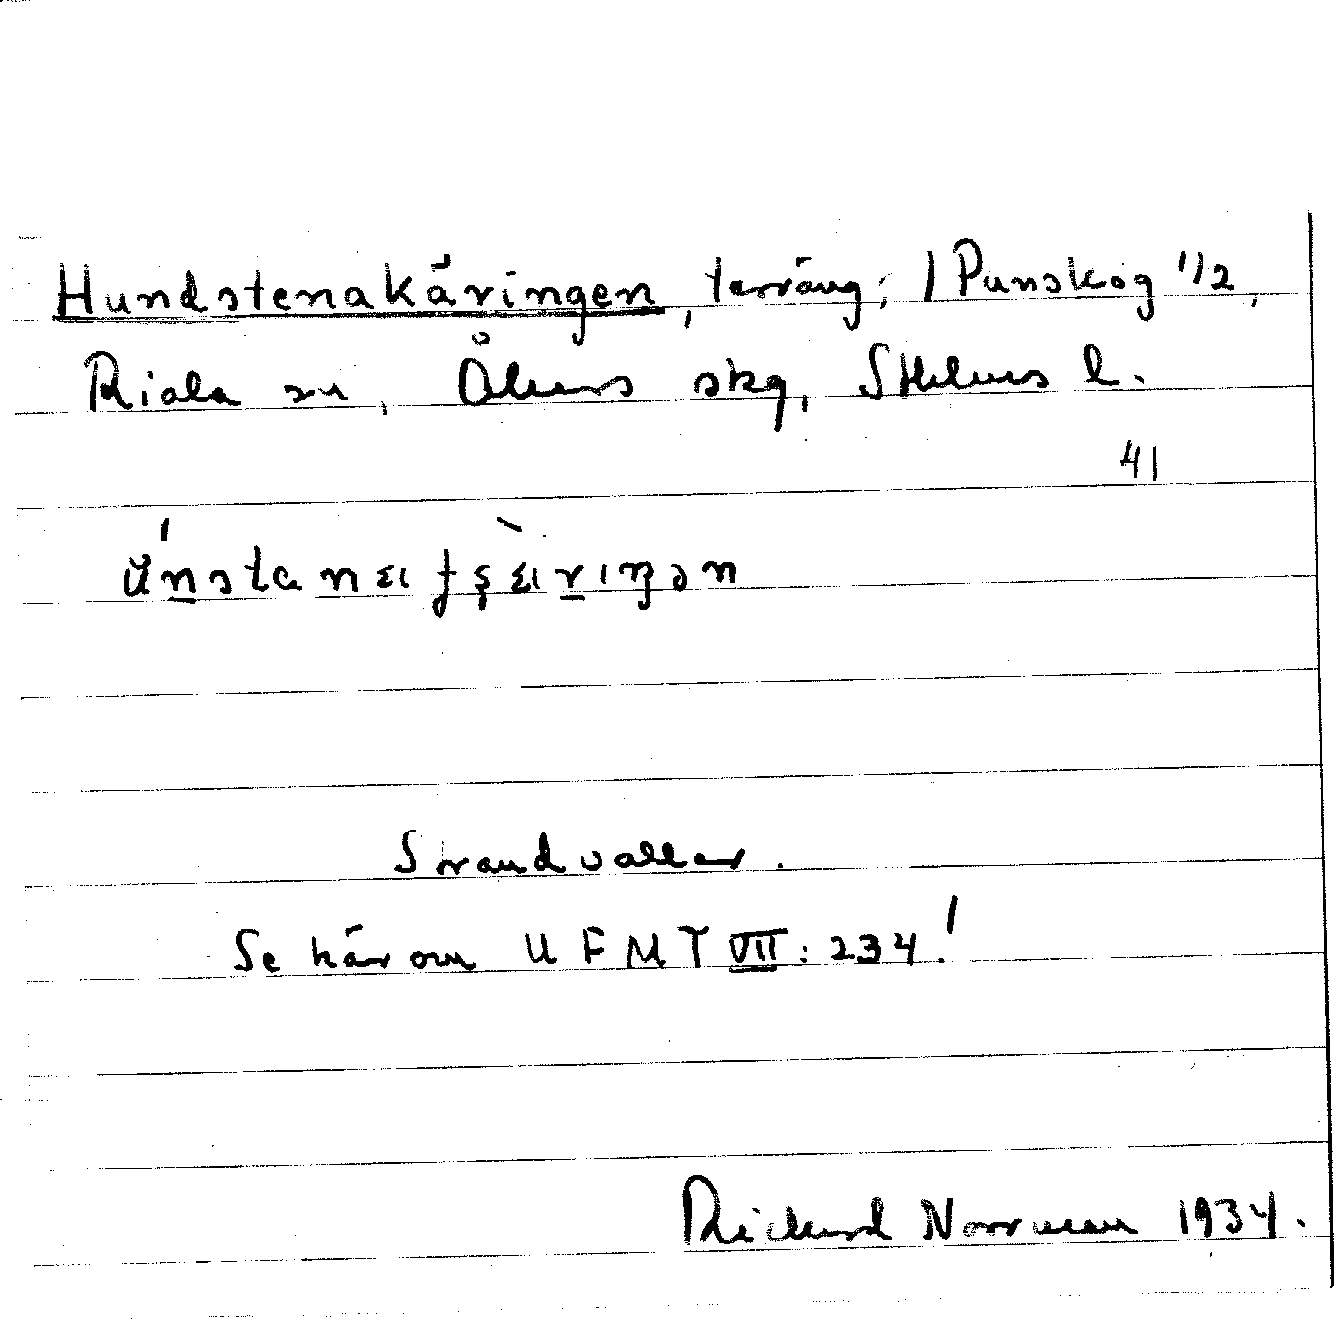 Hundstenakäringen, terräng; / Panskog 1/2,
Riala sn, Åkers skg, Sthlms l.
41
Strandvallar.
Se härom U F M T VII: 234!
Rickard Norrman 1934.